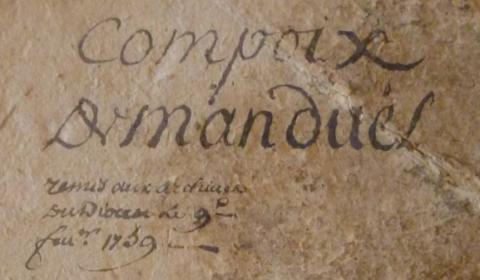 Compoix
Darmanduels
remis aux archives
du Dioceze Le 9e
feur. 1759